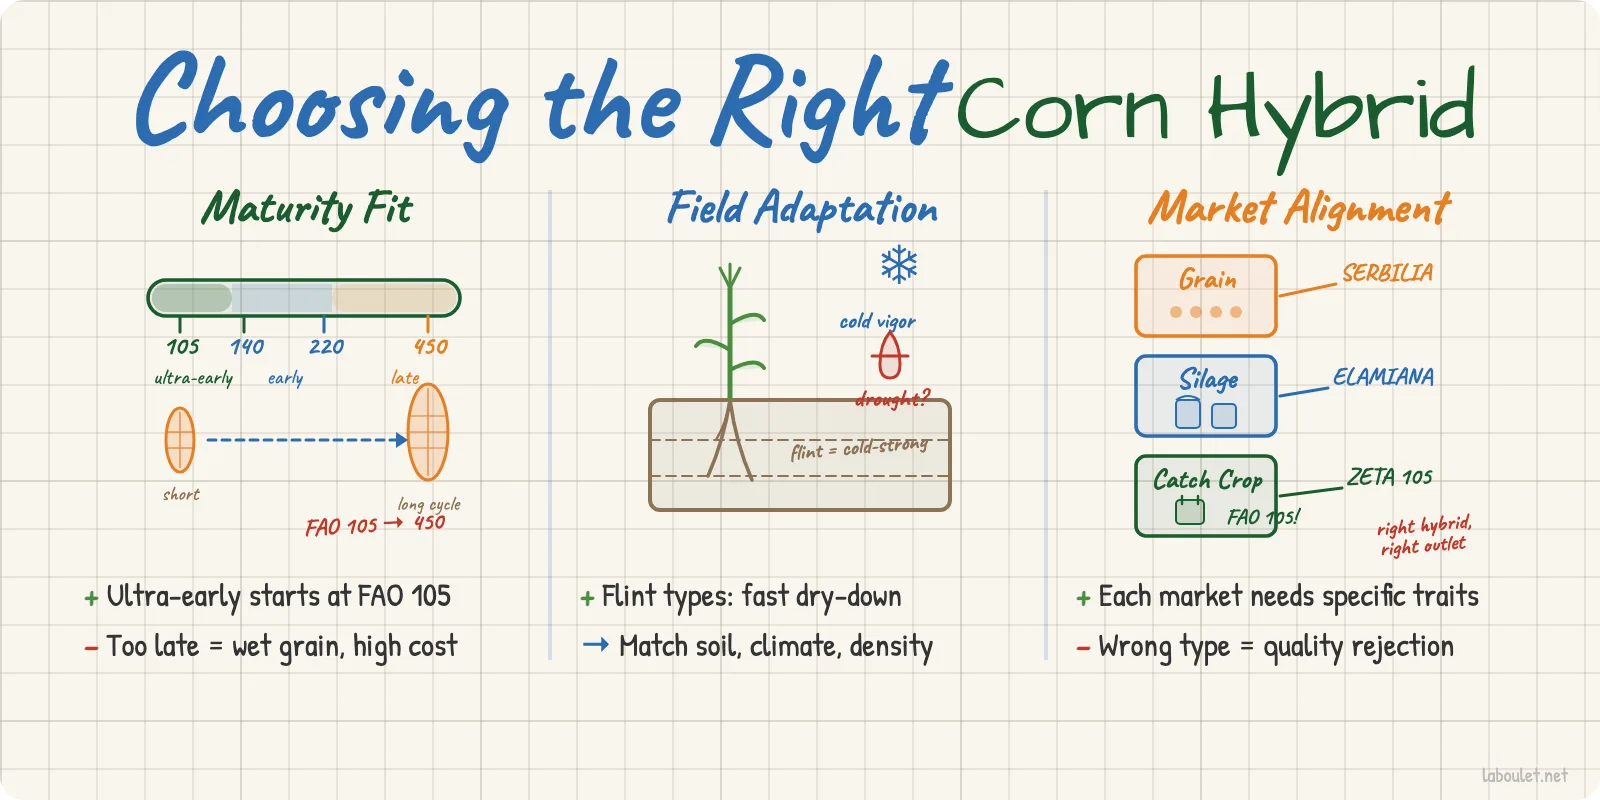 Choosing the Right Corn Hybrid
Maturity Fit
105 140 220 450
ultra-early early late
short
long cycle
FAO 105 → 450
+ Ultra-early starts at FAO 105
- Too late = wet grain, high cost
Field Adaptation
cold vigor
drought?
flint = cold-strong
+ Flint types: fast dry-down
→ Match soil, climate, density
Market Alignment
Grain
SERBILIA
Silage
ELAMIANA
Catch Crop
ZETA 105
FAO 105!
right hybrid,
right outlet
+ Each market needs specific traits
- Wrong type = quality rejection
laboulet.net